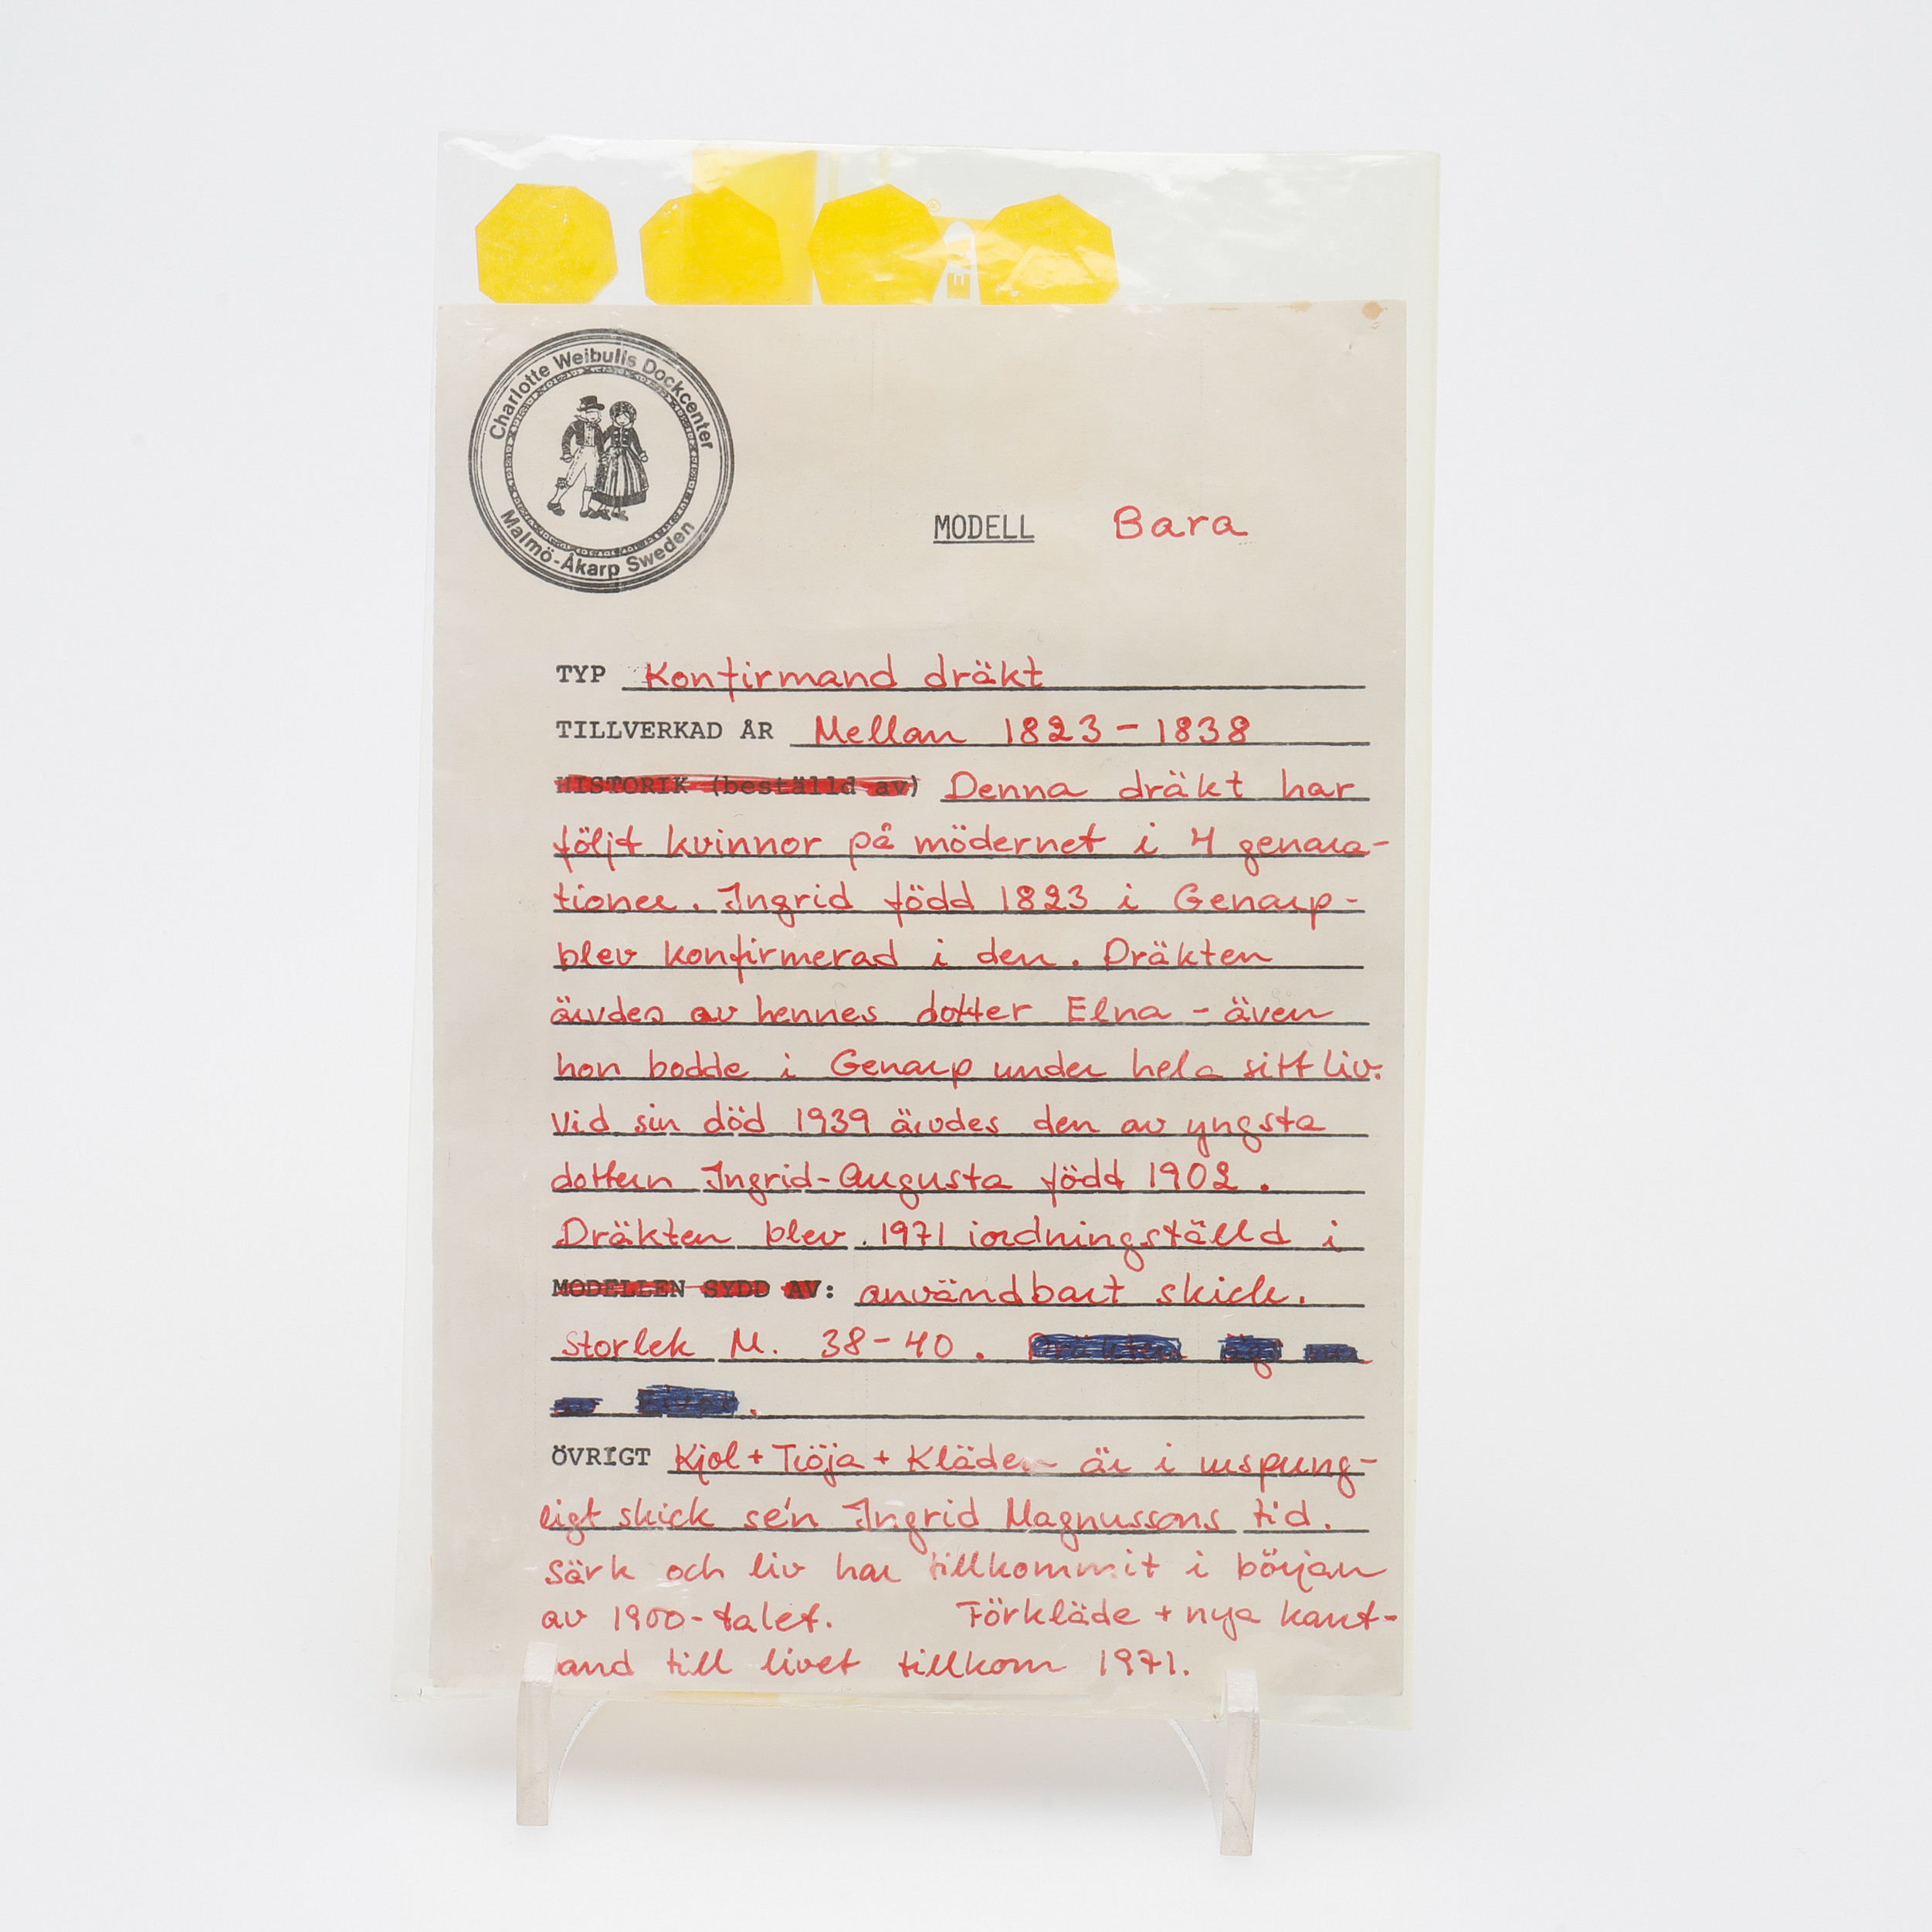 Charlotte Weibulls Dockcenter
Malmö-Åkarp Sweden
MODELL Bara
TYP Konfirmand dräkt
TILLVERKAD ÅR Mellan 1823-1838
HISTORIK (beställd av) Denna dräkt har
följt kvinnor på mödernet i 4 genara-
tioner. Ingrid född 1823 i Genarp-
blev konfirmerad i den. Dräkten
ärvdes av hennes dotter Elna - även
hon bodde i Genarp under hela sitt liv.
Vid sin död 1939 ärvdes den av yngsta
dottern Ingrid-Augusta född 1902.
Dräkten blev 1971 iordningställd i
MODELLEN SYDD AV: användbart skick.
Storlek M. 38-40.
ÖVRIGT Kjol + Tröja + Kläden är i urspung-
ligt skick se'n Ingrid Magnussons tid.
Särk och liv har tillkommit i början
av 1900-talet. Förkläde + nya kant-
and till livet tillkom 1971.